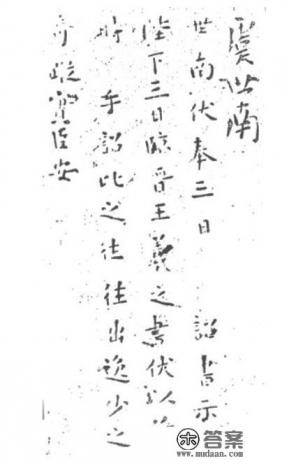 虞世南
世南伏奉三日 詔書示
陛下三日臨晉王羲之書伏以
時手詔比之往往出逸少之
臣安
答案
www.mudaan.com